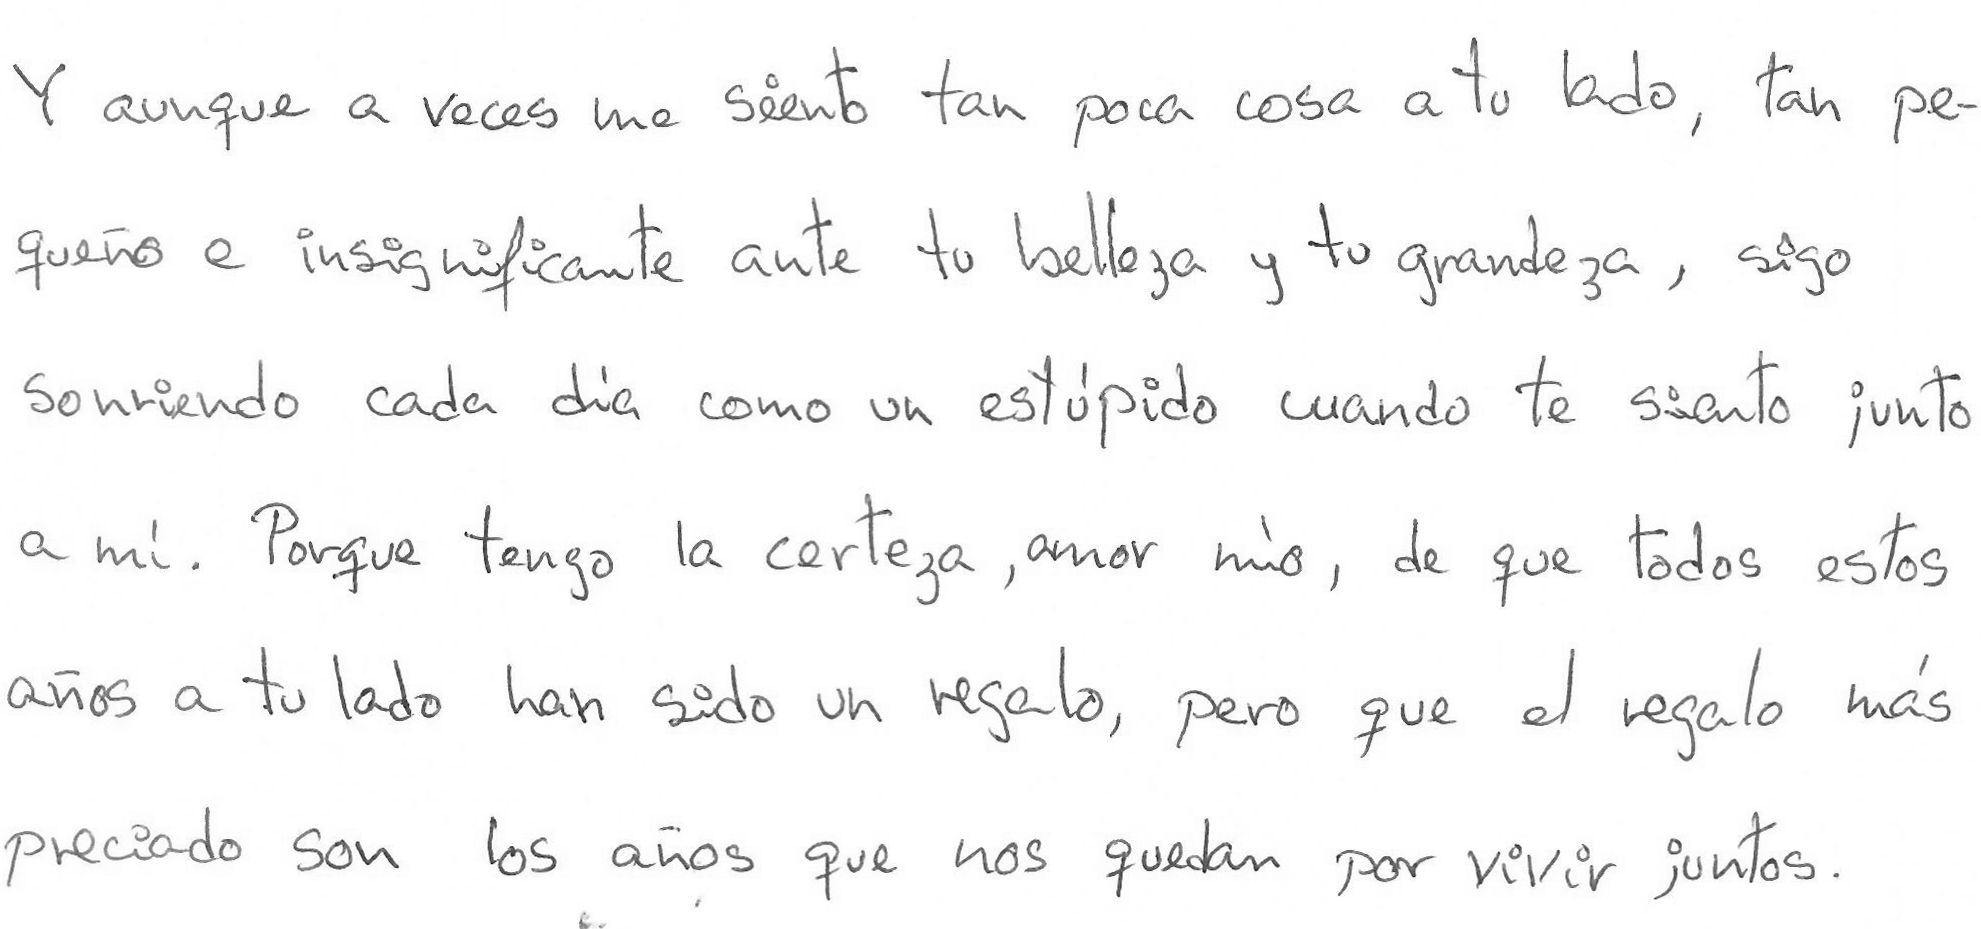 Y aunque a veces me siento tan poca cosa a tu lado, tan pe-
queño e insignificante ante tu belleza y tu grandeza, sigo
sonriendo cada día como un estúpido cuando te siento junto
a mí. Porque tengo la certeza, amor mío, de que todos estos
años a tu lado han sido un regalo, pero que el regalo más
preciado son los años que nos quedan por vivir juntos.